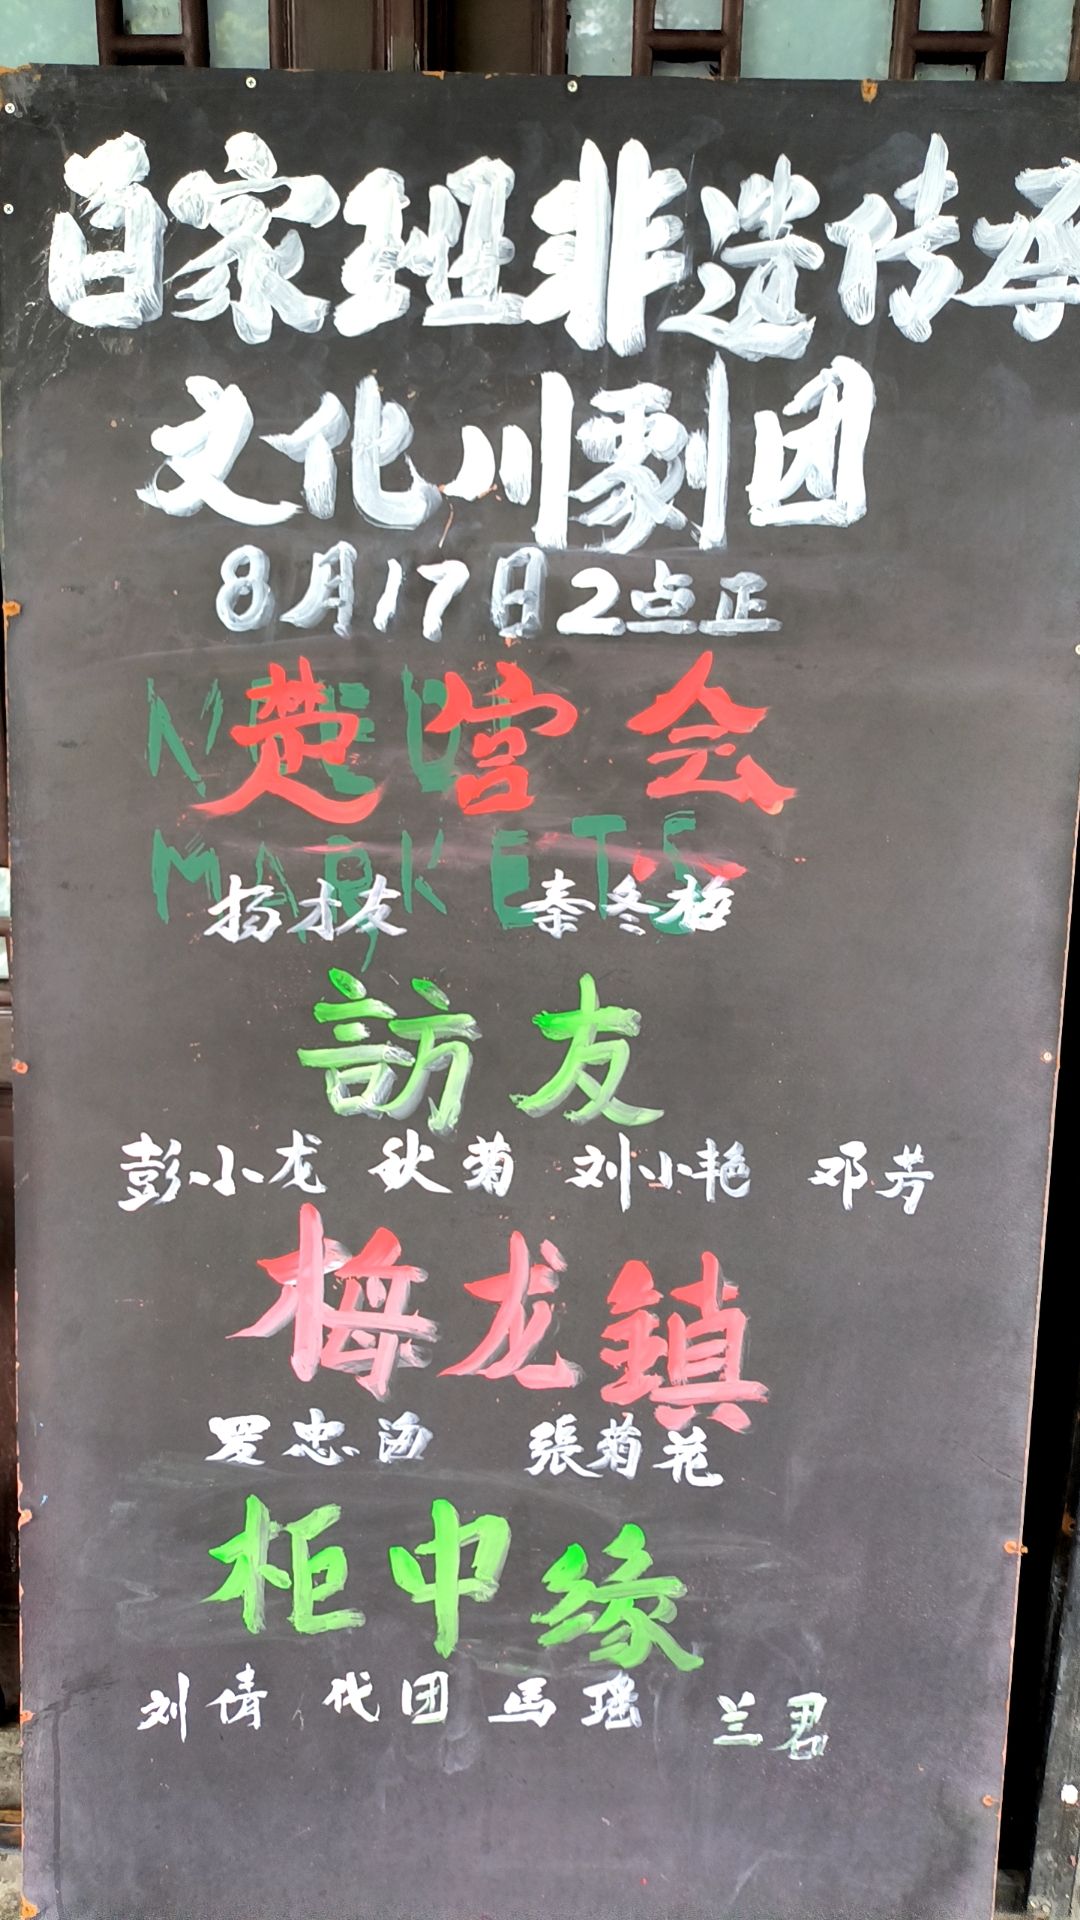 百家班非遗传承
文化川剧团
8月17日2点正
楚宫会
MARKETS
扬才友 秦冬梅
訪友
彭小龙 秋菊 刘小艳 邓芳
梅龙鎮
罗忠海 張菊花
柜中缘
刘倩 代团 馬瑶 兰君